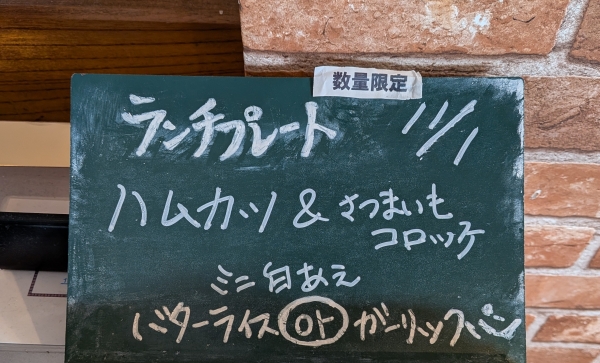 数量限定
ランチプレート 11/1
ハムカツ & さつまいも
コロッケ
ミニ白あえ
バターライス or ガーリックパン